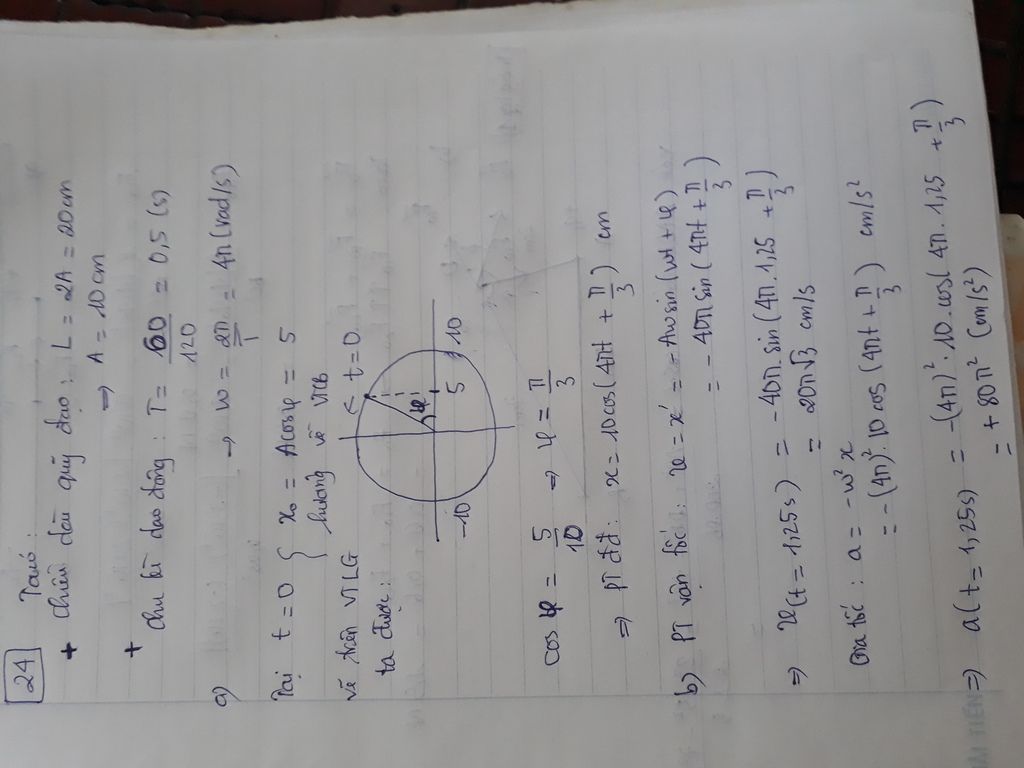 24
Ta có:
+ Chiều dài quỹ đạo: L = 2A = 20cm
⇒ A = 10cm
+ Chu kì dao động: T = 60/120 = 0,5 (s)
a) → ω = 2π/T = 4π (rad/s)
Tại t = 0 { x₀ = Acosφ = 5
hướng về VTCB
Vẽ trên VTLG
ta được:
t = 0
φ
-10 5 10
cos φ = 5/10 ⇒ φ = π/3
⇒ PT dđ: x = 10cos(4πt + π/3) cm
b) PT vận tốc: v = x' = -Aω sin(ωt + φ)
= -40π sin(4πt + π/3)
⇒ v(t = 1,25s) = -40π.sin(4π.1,25 + π/3)
= 20π√3 cm/s
Gia tốc: a = -ω²x
= -(4π)².10cos(4πt + π/3) cm/s²
⇒ a(t = 1,25s) = -(4π)².10.cos(4π.1,25 + π/3)
= +80π² (cm/s²)